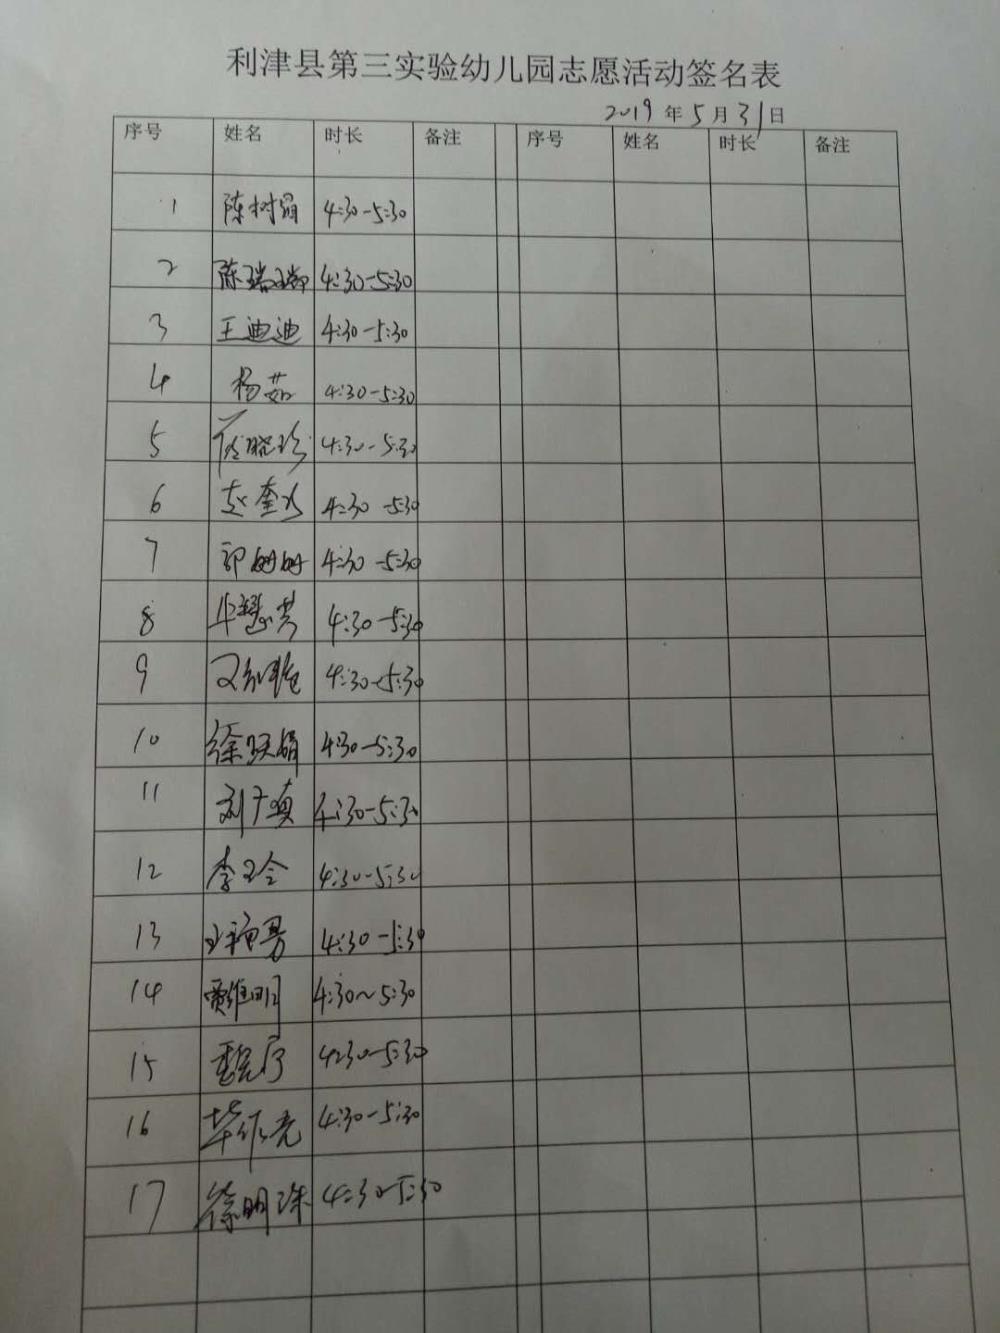 利津县第三实验幼儿园志愿活动签名表
2019年5月31日
序号 姓名 时长 备注 序号 姓名 时长 备注
1 陈树娟 4:30-5:30
2 陈瑞瑞 4:30-5:30
3 王迪迪 4:30-5:30
4 杨茹 4:30-5:30
5 晓珍 4:30-5:30
6 赵奎 4:30-5:30
7 郭姗姗 4:30-5:30
8 4:30-5:30
9 4:30-5:30
10 徐跃娟 4:30-5:30
11 刘广真 4:30-5:30
12 李玉令 4:30-5:30
13 4:30-5:30
14 贾维明 4:30~5:30
15 4:30-5:30
16 毕作亮 4:30-5:30
17 徐明珠 4:30-5:30